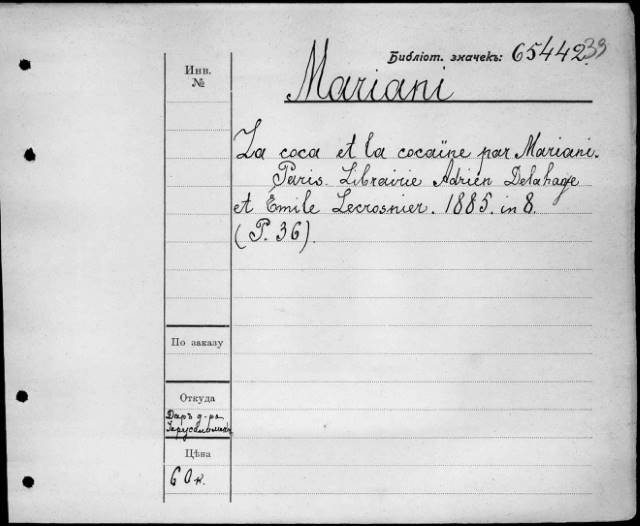 Библіот. значекъ: 65442 39
Инв. №
Mariani
La coca et la cocaïne par Mariani.
Paris. Librairie Adrien Delahaye
et Émile Lecrosnier. 1885. in 8.
(P. 36).
По заказу
Откуда
Даръ д-ра
Цѣна
60 к.